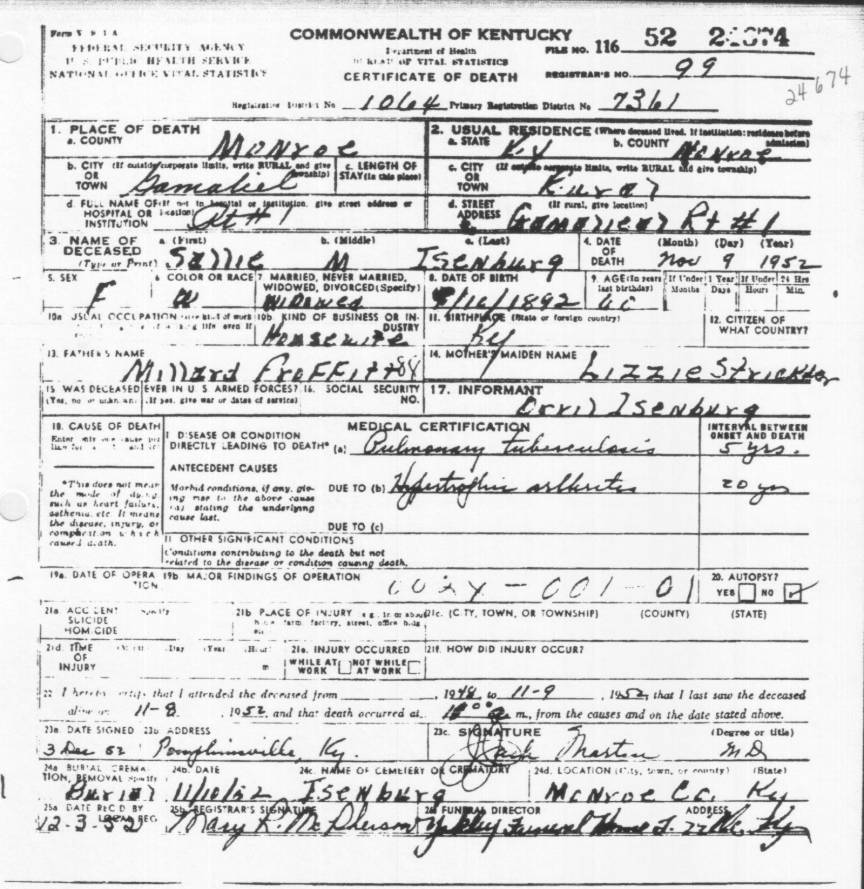 Form V. S 1 A
FEDERAL SECURITY AGENCY
U. S. PUBLIC HEALTH SERVICE
NATIONAL OFFICE VITAL STATISTICS
COMMONWEALTH OF KENTUCKY
Department of Health
BUREAU OF VITAL STATISTICS
CERTIFICATE OF DEATH
FILE NO. 116 52 24674
REGISTRAR'S NO. 99
24674
Registration District No 1064 Primary Registration District No 7361
1. PLACE OF DEATH
a. COUNTY Monroe
2. USUAL RESIDENCE (Where deceased lived. If institution: residence before admission)
a. STATE Ky b. COUNTY Monroe
b. CITY (If outside corporate limits, write RURAL and give township)
OR
TOWN Gamaliel
c. LENGTH OF
STAY (in this place)
c. CITY (If outside corporate limits, write RURAL and give township)
OR
TOWN Rural
d. FULL NAME OF (If not in hospital or institution, give street address or location)
HOSPITAL OR
INSTITUTION Rt # 1
d. STREET (If rural, give location)
ADDRESS Gamaliel Rt # 1
3. NAME OF DECEASED
(Type or Print)
a (First) Sallie
b. (Middle) M
c. (Last) Isenburg
4. DATE OF DEATH
(Month) (Day) (Year)
Nov 9 1952
5. SEX
F
6 COLOR OR RACE
W
7 MARRIED, NEVER MARRIED,
WIDOWED, DIVORCED (Specify)
Widowed
8. DATE OF BIRTH
/16/1892
9. AGE (In years last birthday)
60
If Under 1 Year
Months Days
If Under 24 Hrs
Hours Min.
10a USUAL OCCUPATION
10b. KIND OF BUSINESS OR INDUSTRY
Housewife
11. BIRTHPLACE (State or foreign country)
Ky
12. CITIZEN OF
WHAT COUNTRY?
13. FATHER'S NAME
Millard Proffitt 88
14. MOTHER'S MAIDEN NAME
Lizzie Strickler
15 WAS DECEASED EVER IN U S ARMED FORCES?
(Yes, no or unknown) (If yes, give war or dates of service)
16. SOCIAL SECURITY
NO.
17. INFORMANT
Orvil Isenburg
18. CAUSE OF DEATH
Enter only one cause per
MEDICAL CERTIFICATION
INTERVAL BETWEEN
ONSET AND DEATH
I DISEASE OR CONDITION
DIRECTLY LEADING TO DEATH* (a) Pulmonary tuberculosis 5 yrs.
*This does not mean
the mode of dying
such as heart failure,
asthenia, etc. It means
the disease, injury, or
complication which
caused death.
ANTECEDENT CAUSES
Morbid conditions, if any, giving rise to the above cause
(a) stating the underlying
cause last.
DUE TO (b) Hypertrophic arthritis 20 yrs
DUE TO (c)
II OTHER SIGNIFICANT CONDITIONS
Conditions contributing to the death but not
related to the disease or condition causing death.
19a. DATE OF OPERATION
19b MAJOR FINDINGS OF OPERATION
002X-001-01
20. AUTOPSY?
YES NO
21a ACCIDENT Specify
SUICIDE
HOMICIDE
21b PLACE OF INJURY e.g., in or about
home, farm, factory, street, office bldg
etc
21c. (CITY, TOWN, OR TOWNSHIP) (COUNTY) (STATE)
21d. TIME Month Day Year Hour
OF
INJURY m
21e. INJURY OCCURRED
WHILE AT WORK NOT WHILE AT WORK
21f. HOW DID INJURY OCCUR?
22 I hereby certify that I attended the deceased from , 1948 to 11-9 , 1952, that I last saw the deceased
alive on 11-8 , 1952 and that death occurred at m., from the causes and on the date stated above.
23a DATE SIGNED
3 Dec 52
23b ADDRESS
Tompkinsville, Ky.
23c. SIGNATURE (Degree or title)
Marion MD
24a BURIAL, CREMATION, REMOVAL Specify
Burial
24b. DATE
11/10/52
24c NAME OF CEMETERY OR CREMATORY
Isenburg
24d. LOCATION (City, town, or county) (State)
Monroe Co. Ky
25a DATE REC'D BY
LOCAL REG
12-3-52
25b REGISTRAR'S SIGNATURE
Mary K. McPherson
26 FUNERAL DIRECTOR ADDRESS
Yokley Funeral Home Ky